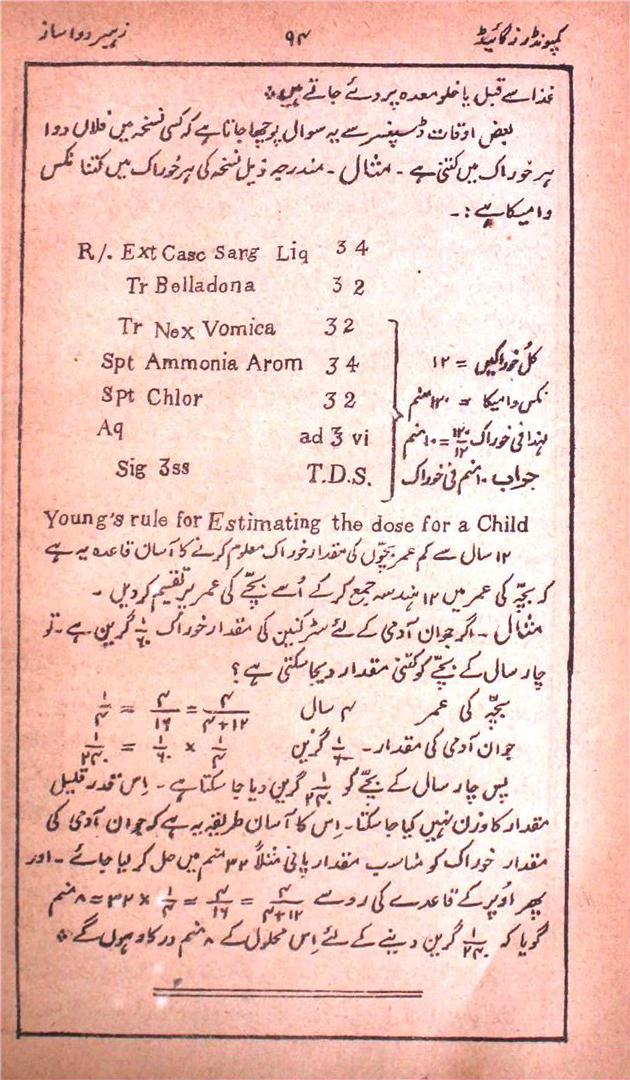 کمپونڈرز گائیڈ ۹۴ زہیر دوا ساز
غذا سے قبل یا خلو معدہ پر دئے جاتے ہیں ٭
بعض اوقات ڈسپنسر سے یہ سوال پوچھا جاتا ہے کہ کسی نسخہ میں فلاں دوا
ہر خوراک میں کتنی ہے ۔ مثال ۔ مندرجہ ذیل نسخہ کی ہر خوراک میں کتنا نکس
وامیکا ہے :۔
R/. Ext Casc Sarg Liq 3 4
Tr Belladona 3 2
Tr Nex Vomica 3 2
Spt Ammonia Arom 3 4
Spt Chlor 3 2
Aq ad 3 vi
Sig 3ss T.D.S.
کل خوراکیں = ۱۲
نکس وامیکا = ۱۲۰ منم
لہذا فی خوراک ۱۲۰/۱۲ = ۱۰ منم
جواب ۱۰ منم فی خوراک
Young's rule for Estimating the dose for a Child
۱۲ سال سے کم عمر بچوں کی مقدار خوراک معلوم کرنے کا آسان قاعدہ یہ ہے
کہ بچہ کی عمر میں ۱۲ ہندسہ جمع کر کے اُسے بچے کی عمر پر تقسیم کر دیں ۔
مثال ۔ اگر جوان آدمی کے لئے سٹرکنین کی مقدار خوراک ۱/۶۰ گرین ہے ۔ تو
چار سال کے بچے کو کتنی مقدار دیجا سکتی ہے ؟
بچہ کی عمر ۴ سال ۴/۴+۱۲ = ۴/۱۶ = ۱/۴
جوان آدمی کی مقدار ۔ ۱/۶۰ گرین ۱/۴ × ۱/۶۰ = ۱/۲۴۰
پس چار سال کے بچے کو ۱/۲۴۰ گرین دیا جا سکتا ہے ۔ اِس قدر قلیل
مقدار کا وزن نہیں کیا جا سکتا ۔ اِس کا آسان طریقہ یہ ہے کہ جوان آدمی کی
مقدار خوراک کو مناسب مقدار پانی مثلاً ۳۲ منم میں حل کر لیا جائے ۔ اور
پھر اُوپر کے قاعدے کی رو سے ۴/۴+۱۲ = ۴/۱۶ = ۱/۴ × ۳۲ = ۸ منم
گویا کہ ۱/۲۴۰ گرین دینے کے لئے اِس محلول کے ۸ منم درکار ہوں گے ٭